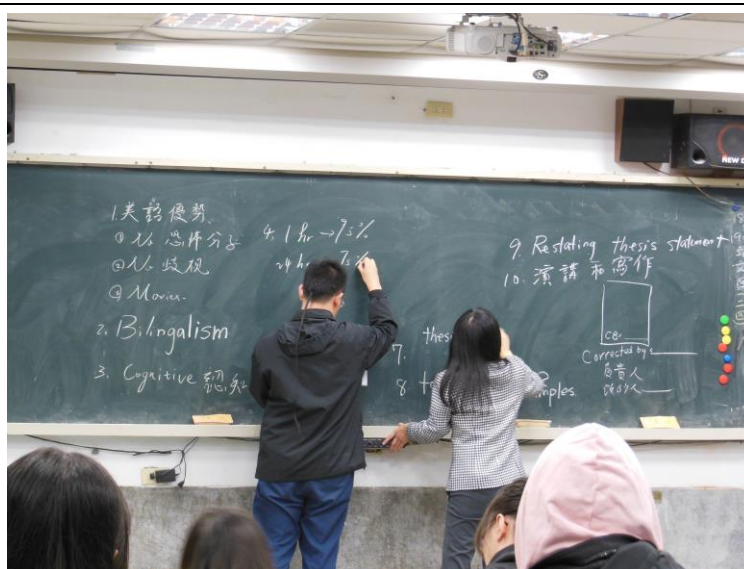 1. 英語優勢
① No 恐怖分子
② No 歧視
③ Movies.
2. Bilingalism
3. Cognitive 認知
4. 1 hr → 95%
24 hr
7. thes
8
mples
9. Restating thesis statement
10. 演講和寫作
Corrected by:
負責人
NEW D